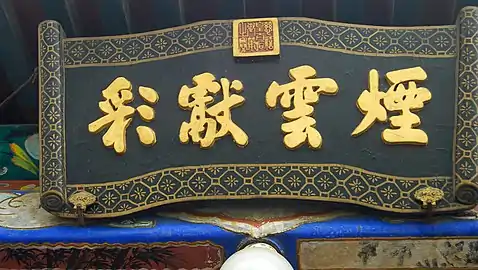 煙雲獻彩